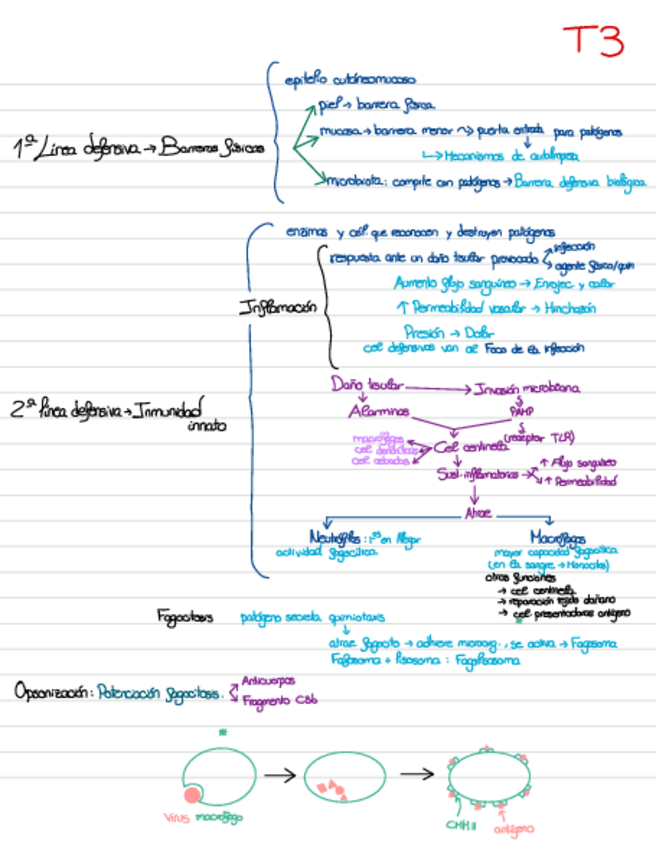 T3
epitelio cutáneomucoso
piel → barrera física
1ª Línea defensiva → Barreras físicas
mucosa → barrera menor ⤳ puerta entrada para patógenos
↳ Mecanismos de autolimpieza
microbiota: compite con patógenos → Barrera defensiva biológica
enzimas y cél. que reconocen y destruyen patógenos
respuesta ante un daño tisular provocado
infección
agente físico/quím
Inflamación
Aumento flujo sanguíneo → Enrojec y calor
↑ Permeabilidad vascular → Hinchazón
Presión → Dolor
cel defensivas van al Foco de la infección
2ª línea defensiva → Inmunidad innata
Daño tisular → Invasión microbiana
Alarminas
PAMP
(receptor TLR)
Cel centinela
macrófagos
cel dendríticas
cel cebadas
Sust. inflamatorias
↑ Flujo sanguíneo
↑ Permeabilidad
Atrae
Neutrófilos: 1ºs en llegar
actividad fagocítica
Macrófagos
mayor capacidad fagocítica
(en la sangre → Monocitos)
otras funciones
→ cel centinela
→ reparación tejido dañano
→ cel presentadoras antígeno
*
Fagocitosis
patógeno secreta quimiotaxis
atrae fagocito → adhiere microorg., se activa → Fagosoma
Fagosoma + lisosoma: Fagolisosoma
Opsonización: Potenciación fagocitosis.
Anticuerpos
Fragmento C3b
*
Virus macrófago
CMHII
antígeno